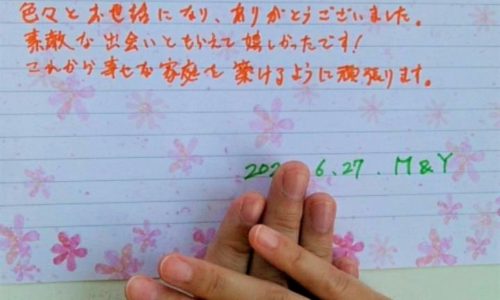 色々とお世話になり、ありがとうございました。
素敵な出会いともらえて嬉しかったです!
これから幸せな家庭を築けるように頑張ります。
6.27. M&Y